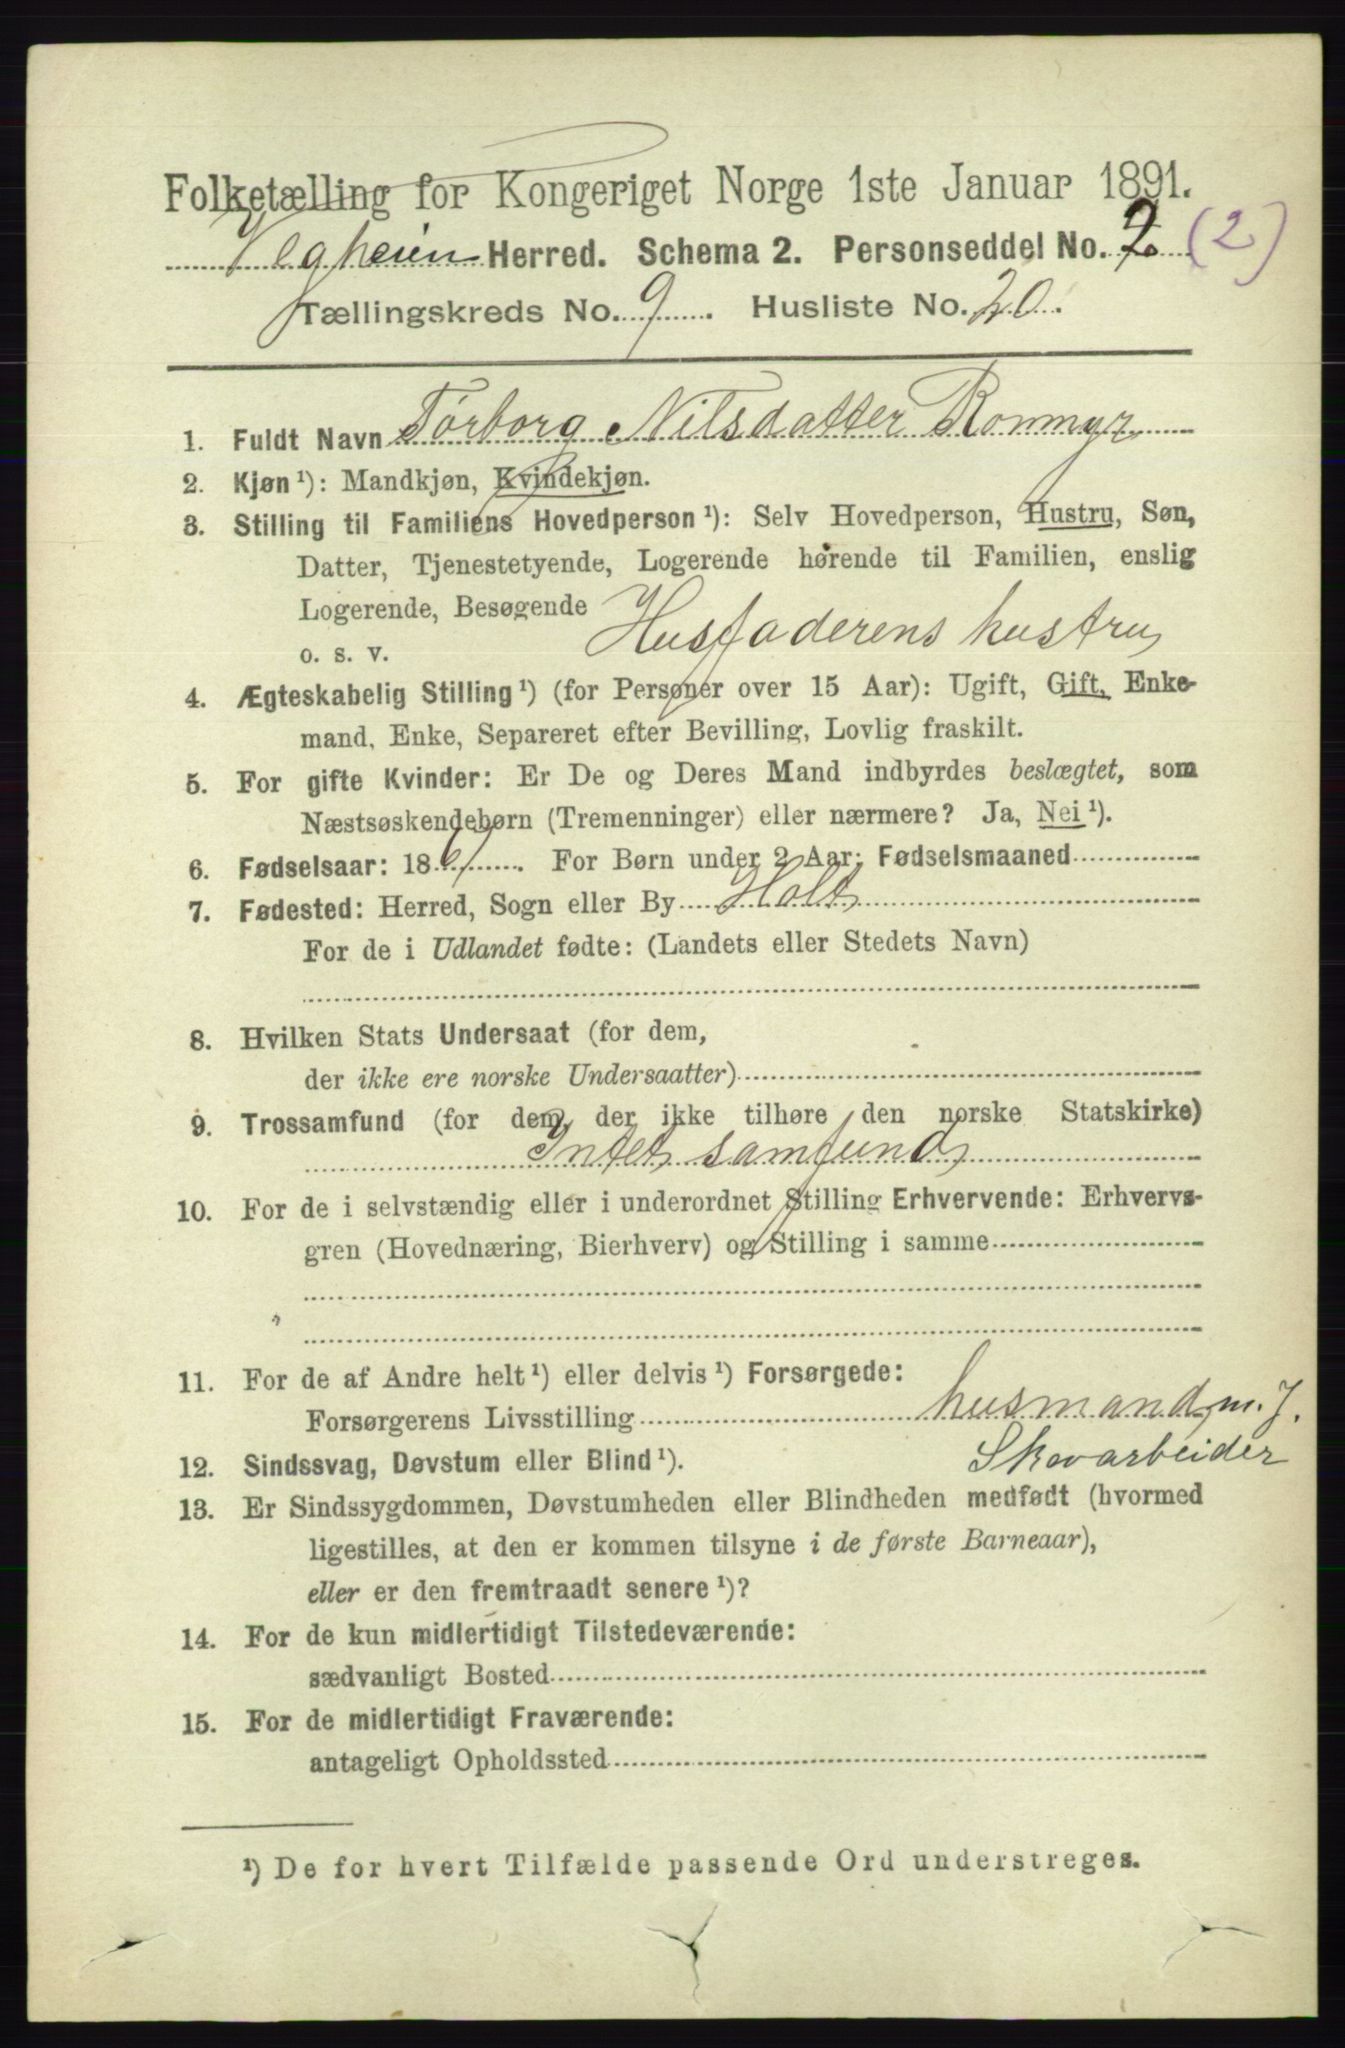 Folketælling for Kongeriget Norge 1ste Januar 1891.
Vegheien Herred. Schema 2. Personseddel No. 2 (2)
Tællingskreds No. 9. Husliste No. 20.
1. Fuldt Navn Torborg Nilsdatter Ronmyr
2. Kjøn ¹): Mandkjøn, Kvindekjøn.
3. Stilling til Familiens Hovedperson ¹): Selv Hovedperson, Hustru, Søn,
Datter, Tjenestetyende, Logerende hørende til Familien, enslig
Logerende, Besøgende
o. s. v. Husfaderens hustru
4. Ægteskabelig Stilling ¹) (for Personer over 15 Aar): Ugift, Gift, Enke-
mand, Enke, Separeret efter Bevilling, Lovlig fraskilt.
5. For gifte Kvinder: Er De og Deres Mand indbyrdes beslægtet, som
Næstsøskendebørn (Tremenninger) eller nærmere? Ja, Nei ¹).
6. Fødselsaar: 18 . For Børn under 2 Aar: Fødselsmaaned
7. Fødested: Herred, Sogn eller By Holt
For de i Udlandet fødte: (Landets eller Stedets Navn)
8. Hvilken Stats Undersaat (for dem,
der ikke ere norske Undersaatter)
9. Trossamfund (for dem, der ikke tilhøre den norske Statskirke)
Intet samfund
10. For de i selvstændig eller i underordnet Stilling Erhvervende: Erhvervs-
gren (Hovednæring, Bierhverv) og Stilling i samme
11. For de af Andre helt ¹) eller delvis ¹) Forsørgede:
Forsørgerens Livsstilling husmand m. J.
Skovarbeider
12. Sindssvag, Døvstum eller Blind ¹).
13. Er Sindssygdommen, Døvstumheden eller Blindheden medfødt (hvormed
ligestilles, at den er kommen tilsyne i de første Barneaar),
eller er den fremtraadt senere ¹)?
14. For de kun midlertidigt Tilstedeværende:
sædvanligt Bosted
15. For de midlertidigt Fraværende:
antageligt Opholdssted
¹) De for hvert Tilfælde passende Ord understreges.